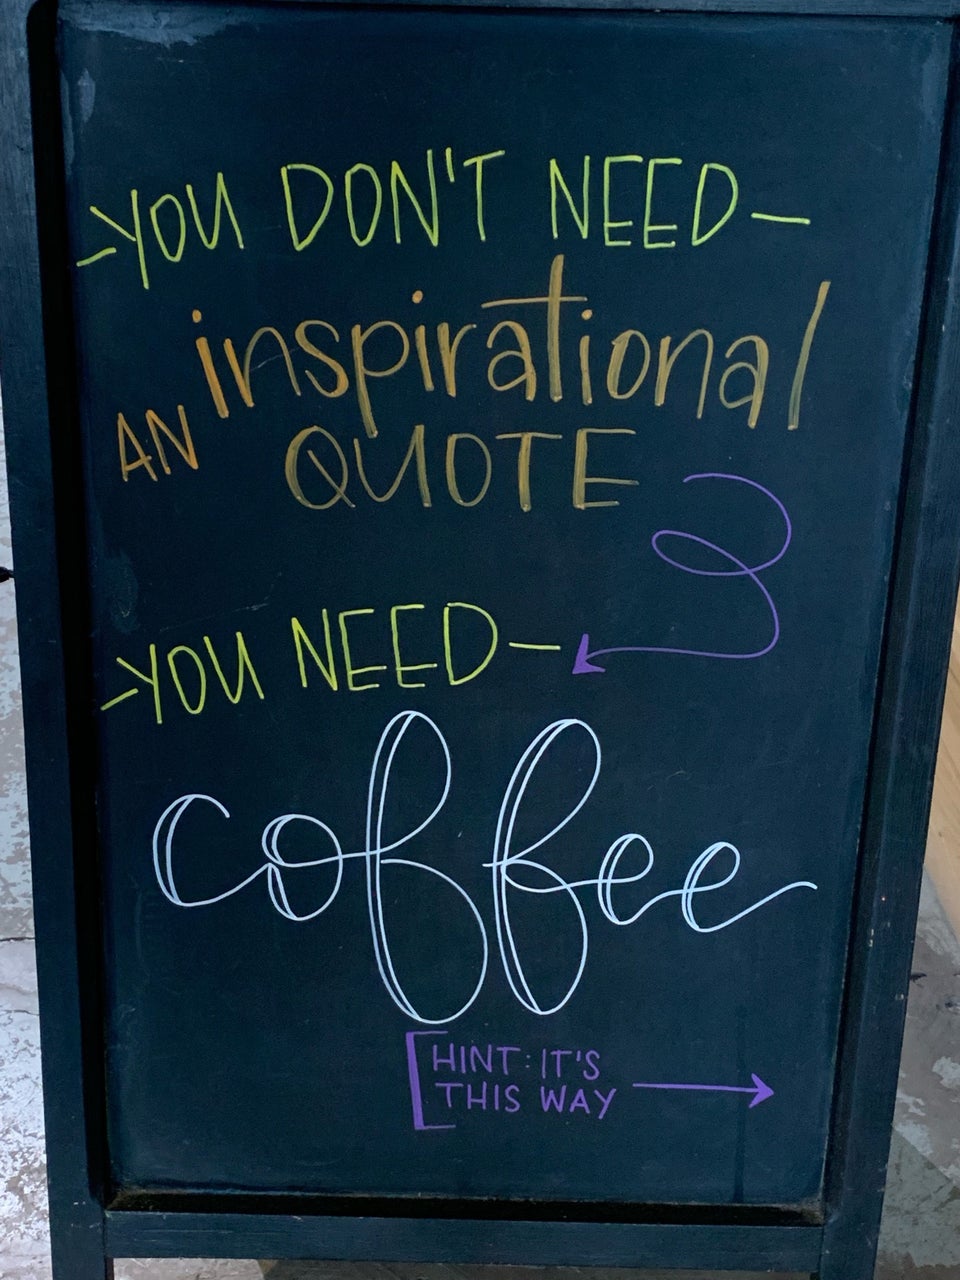 YOU DON'T NEED
AN inspirational
QUOTE
YOU NEED
coffee
HINT: IT'S
THIS WAY